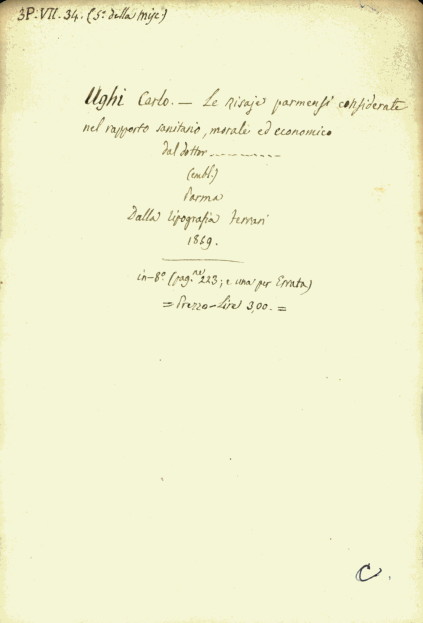 3P.VII.34. (5ª della misc)
Ughi Carlo. — Le Risaje parmensi considerate
nel rapporto sanitario, morale ed economico
dal dottor
(embl.)
Parma
Dalla tipografia Ferrari
1869.
in-8º (pag.ne 223; e una per Errata)
= Prezzo - Lire 3,00. =
C.